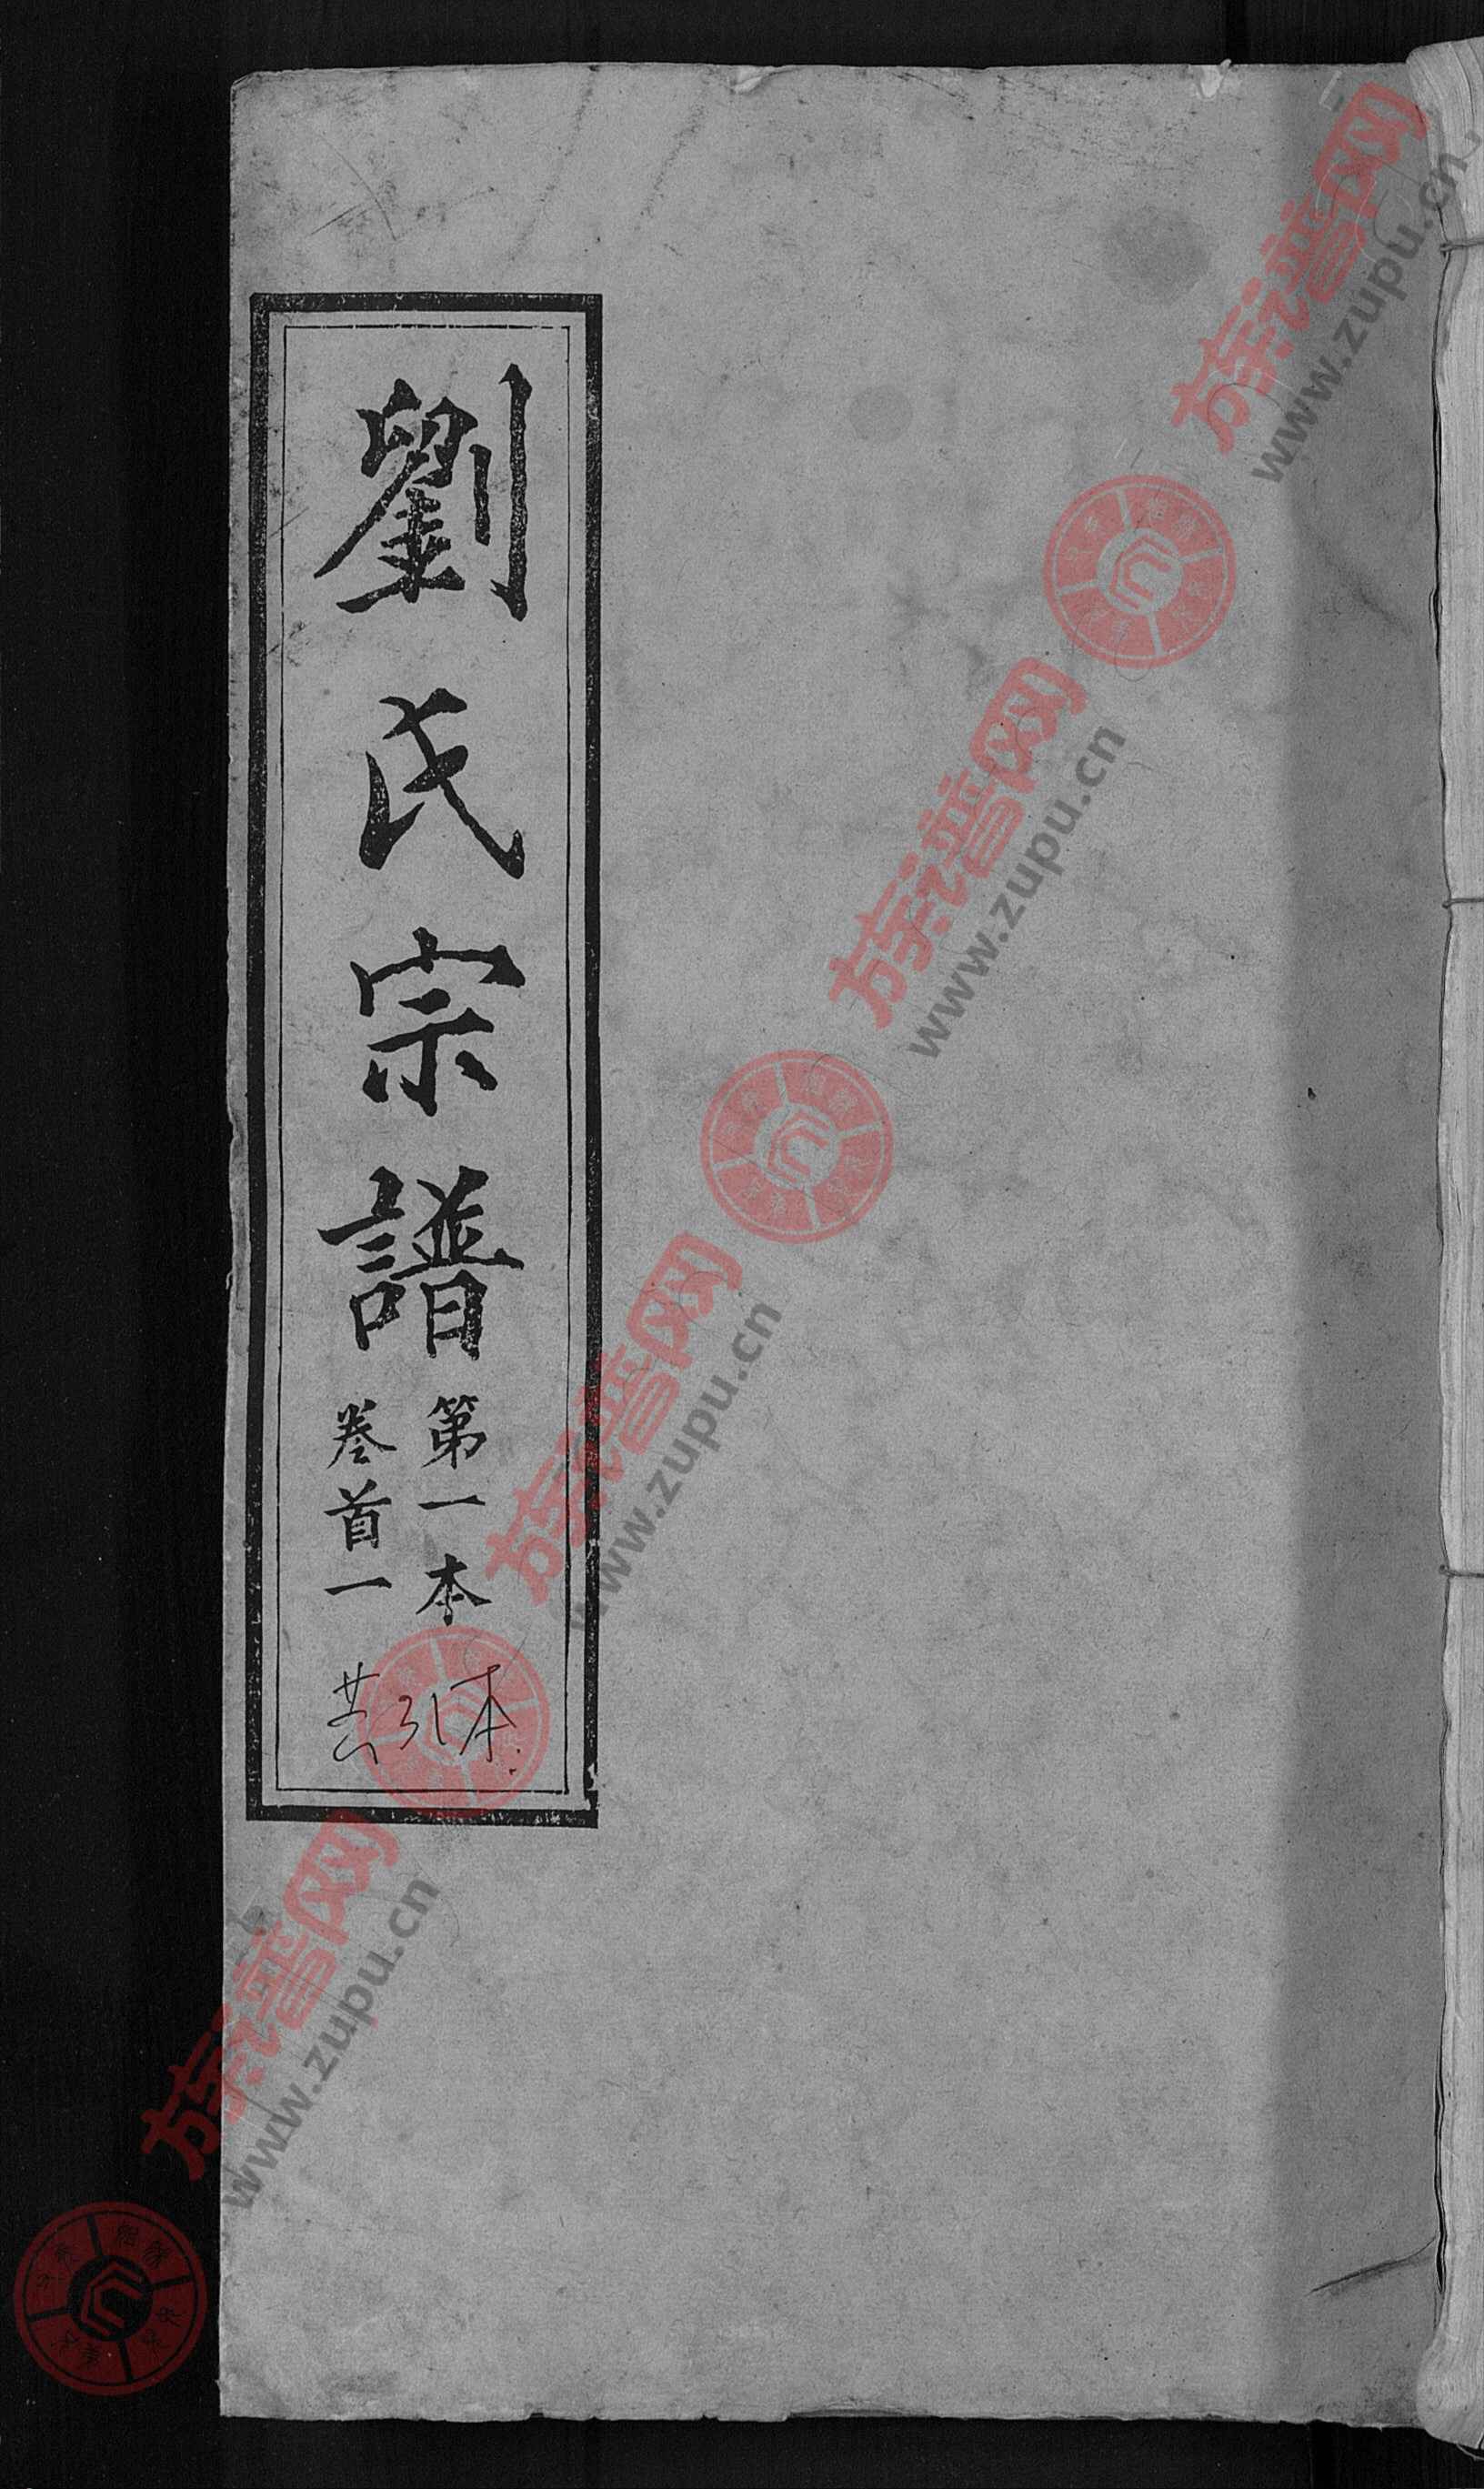 劉氏宗譜
第一本
卷首一
共31本
族谱网
www.zupu.cn
族谱网
www.zupu.cn
族谱网
www.zupu.cn
族谱网
www.zupu.cn